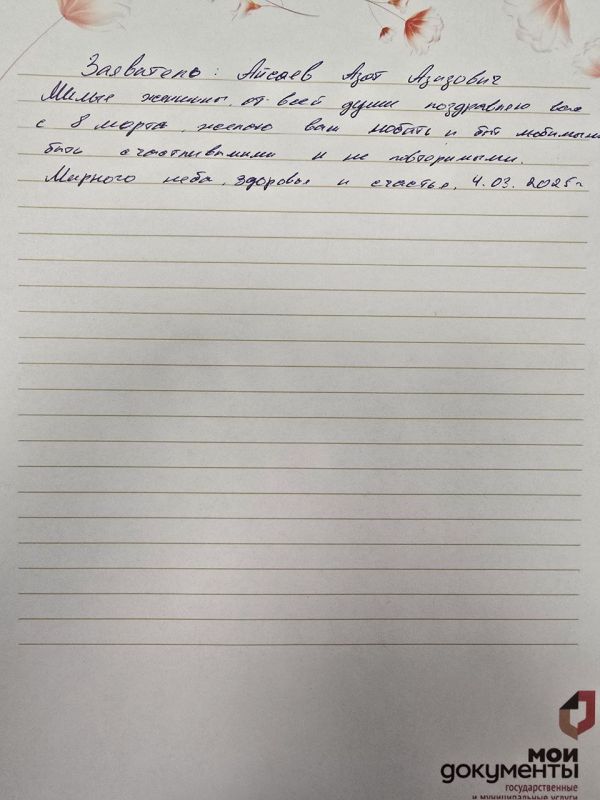 Заявитель: Айсаев Азат Азизович
Милые женщины, от всей души поздравляю вас
с 8 марта, желаю вам любить и быть любимыми
быть счастливыми и не повторимыми.
Мирного неба, здоровья и счастья. 4.03.2025г
мои
документы
государственные
и муниципальные услуги